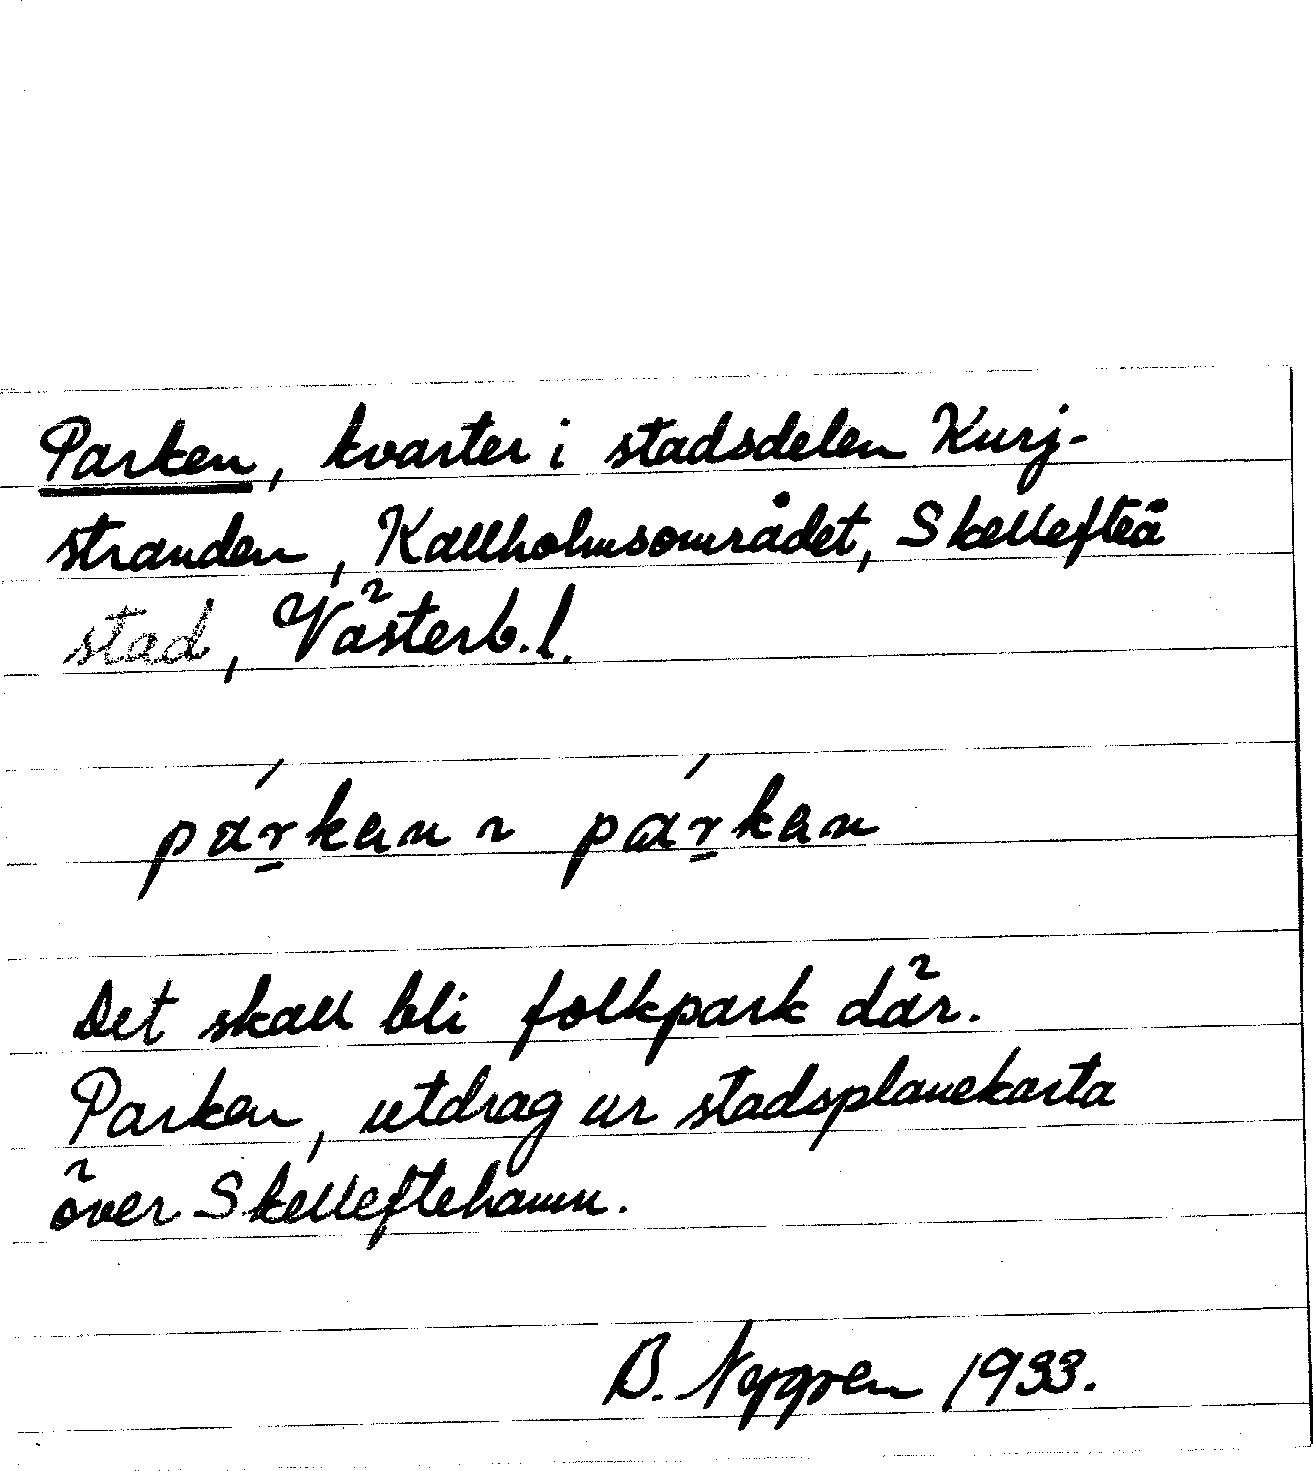 Parken, kvarter i stadsdelen Kurj-
stranden, Kallholmsområdet, Skellefteå
stad, Västerb.l.
pár̲kan ~ pár̲kan
Det skall bli folkpark där.
Parken, utdrag ur stadsplanekarta
över Skelleftehamn.
B. Nygren 1933.